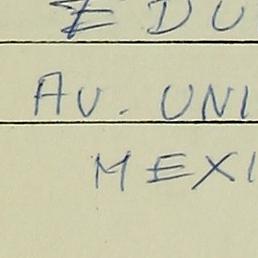 EDU
AV. UNI
MEXI